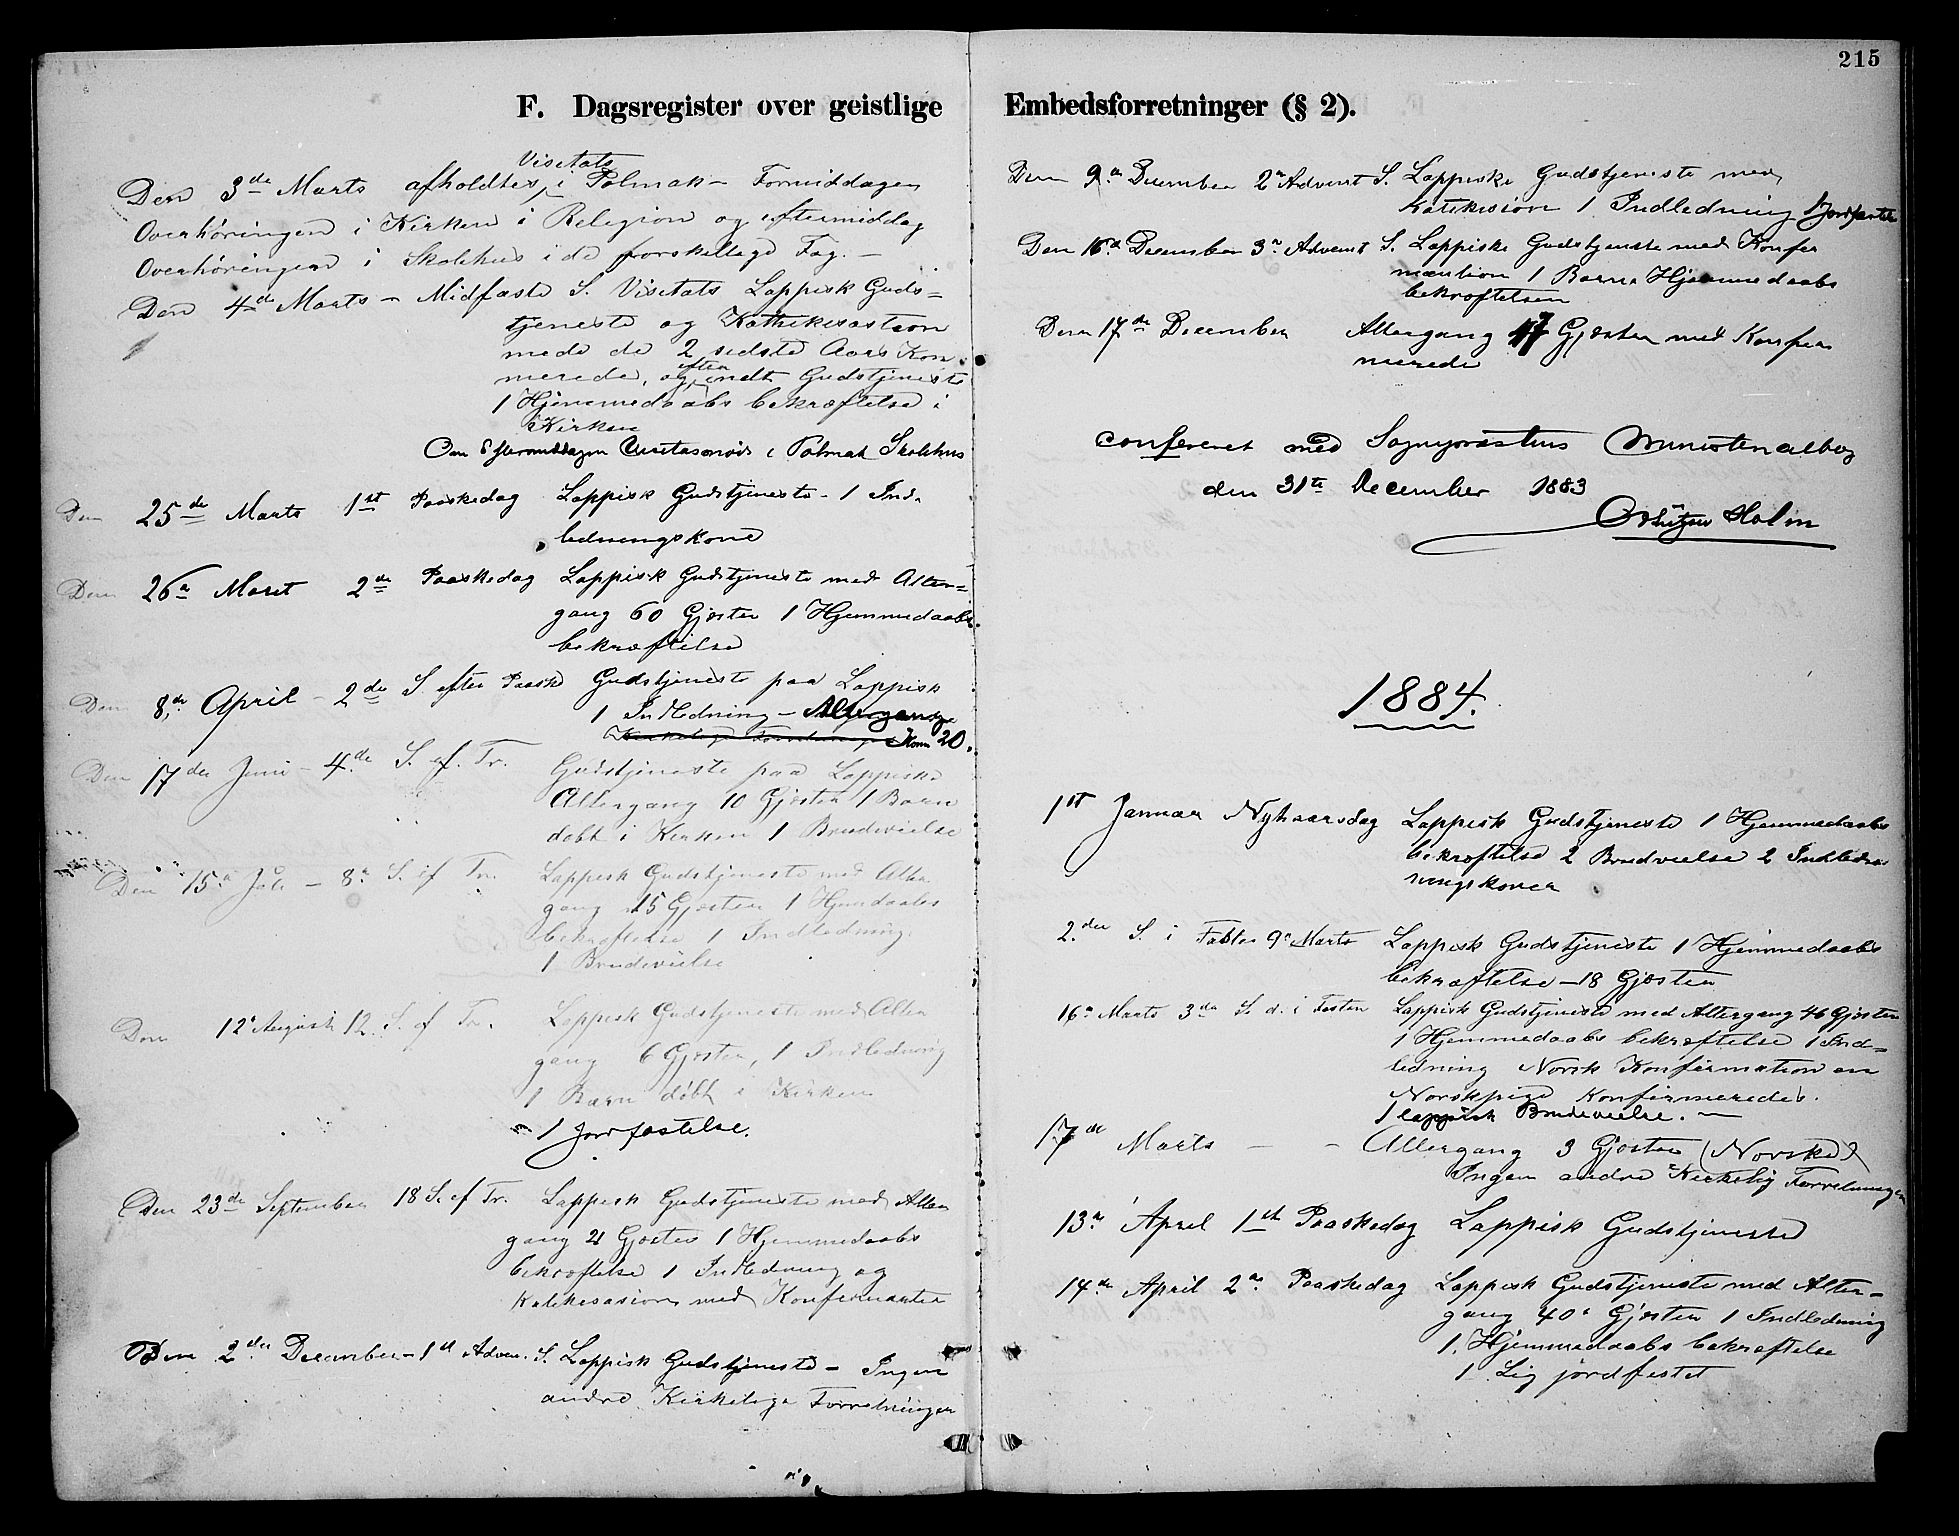 215
F. Dagsregister over geistlige Embedsforretninger (§ 2).
Visetats
Den 3de Marts afholdtes i Polmak - Formiddagen
Overhöringen i Kirken i Religion og eftermiddag
Overhöringen i Skolehus i de forskellige Fag. -
Den 4de Marts - Midfaste S. Visetats Lappisk Guds=
tjeneste og Kathekesastion
mede de 2 sidste Aars Kon
efter
merede, og endt Gudstjeneste
1 Hjemmedaabs bekræftelse i
Kirken
Om Eftermiddagen i Polmak Skolehus
Den 25de Marts 1st Paaskedag Lappisk Gudstjeneste - 1 Ind-
ledningskone
Den 26de Marst 2de Paaskedag Lappisk Gudstjeneste med Alter=
gang 60 Gjester 1 Hjemmedaabs
bekræftelse
Den 8de April - 2de S. efter Paaske Gudstjeneste paa Lappisk
1 Indledning - Altergang
Kom 20.
Den 17de Juni - 4de S. ef. Tr. Gudstjeneste paa Lappiske
Altergang 10 Gjester 1 Barn
döbt i Kirken 1 Brudevielse
Den 15de Juli - 8de S. ef Tr. Lappisk Gudstjeneste med Alter
gang 15 Gjester 1 Hjemdaabs
bekræftelse 1 Indledning.
1 Brudevielse
Den 12te August 12. S. ef Tr. Lappisk Gudstjeneste med Alter
gang 6 Gjester, 1 Indledning
1 Barn döbt i Kirken
1 Jordfæstelse.
Den 23de September 18 S. ef Tr. Lappisk Gudstjeneste med Alter
gang 21 Gjester 1 Hjemmedaabs
bekræftelse 1 Indledning og
Katekesasion med Konfermanter
Den 2den December - 1st Adven. S. Lappisk Gudstjeneste - Ingen
andre Kirkelige Forretninger
Den 9de December 2de Advent S. Lappiske Gudstjeneste med
Katekesion 1 Indledning 1 Jordfæstelse
Den 16de December 3de Advent S. Lappiske Gudstjeneste med Konfer
mantion 1 Barns Hjemmedaabs
bekræftelsen
Den 17de December Altergang 47 Gjester med Konfer
merede
confereret med Sognepræstens Ministerialbog
den 31te December 1883
Holm
1884.
1st Januar Nyhaarsdag Lappisk Gudstjeneste 1 Hjemmedaabs
bekræftelse 2 Brudvielse 2 Indled
ningskoner
2.den S. i Faste 9de Marts Lappisk Gudstjeneste 1 Hjemmedaabs
bekræftelse - 18 Gjester
16de Marts 3de S. d. i Fasten Lappisk Gudstjeneste med Altergang 46 Gjester
1 Hjemmedaabs bekræftelse 1 Ind=
ledning Norsk Konfirmation en
Norskpige Konfirmeredes.
1 lappisk Brudevielse. -
17de Marts - - Altergang 3 Gjester (Norske)
Ingen andre Kirkelig Forretninger
13de April 1st Paaskedag Lappisk Gudstjeneste
14de April 2de Paaskedag Lappisk Gudstjeneste med Alter-
gang 40 Gjester 1 Indledning
1. Hjemmedaabs bekræftelse
1 Lig jordfestet